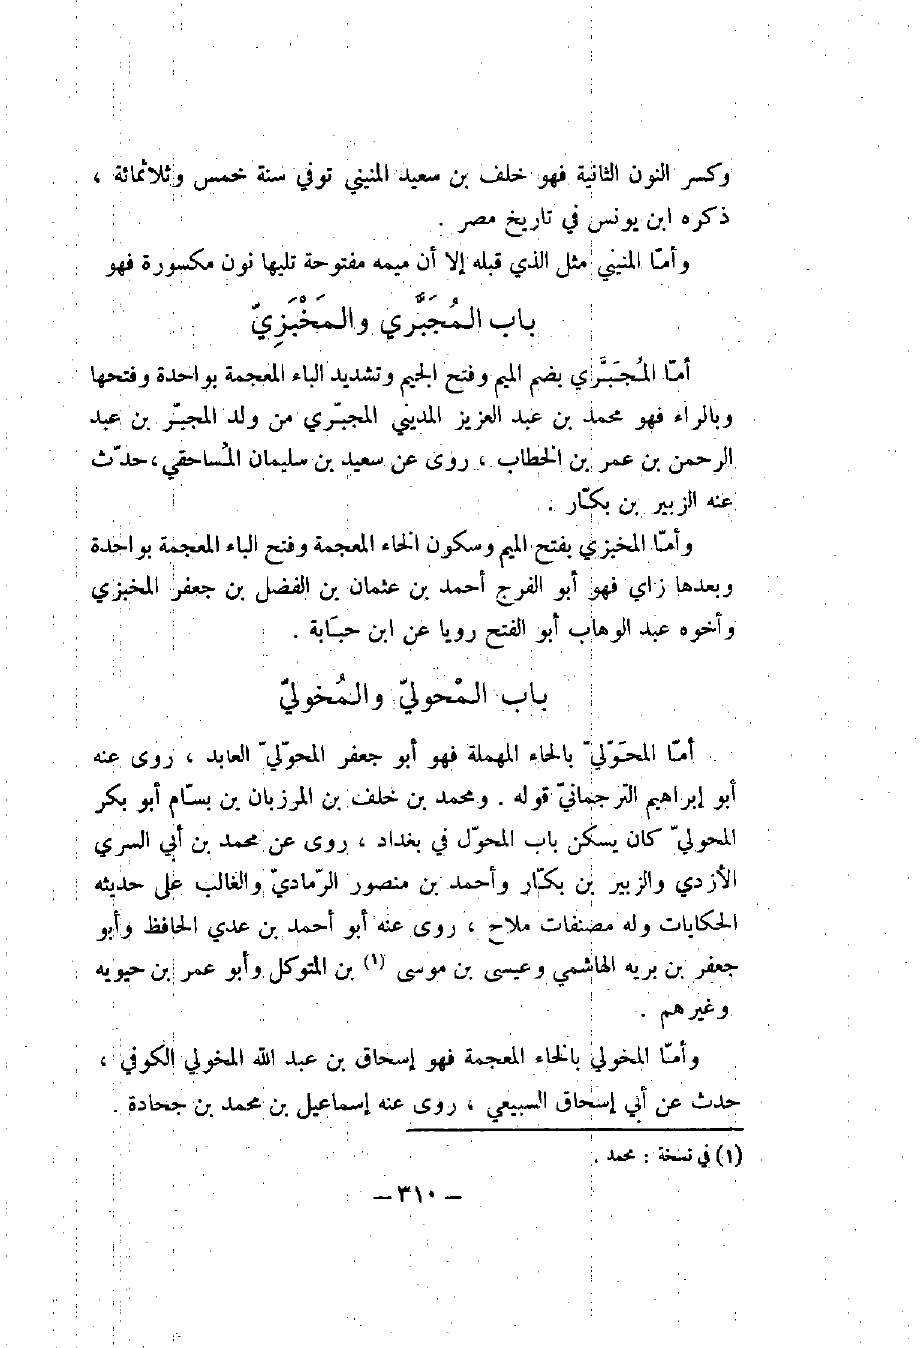 وكسر النون الثانية فهو خلف بن سعيد المنيني توفي سنة خمس وثلاثمائة ،
ذكره ابن يونس في تاريخ مصر .
وأمّا المنيني مثل الذي قبله إلا أن ميمه مفتوحة تليها نون مكسورة فهو
باب المُجَبَّري والمَخْبَزِيّ
أمّا المُجَبَّري بضم الميم وفتح الجيم وتشديد الباء المعجمة بواحدة وفتحها
وبالراء فهو محمد بن عبد العزيز المديني المجبّري من ولد المجبّر بن عبد
الرحمن بن عمر بن الخطاب ، روى عن سعيد بن سليمان المُساحقي ، حدّث
عنه الزبير بن بكّار .
وأمّا المخبزي بفتح الميم وسكون الخاء المعجمة وفتح الباء المعجمة بواحدة
وبعدها زاي فهو أبو الفرج أحمد بن عثمان بن الفضل بن جعفر المخبزي
وأخوه عبد الوهاب أبو الفتح رويا عن ابن حبَابة .
باب المْحوليّ والمُخوليّ
أمّا المحَوّليّ بالحاء المهملة فهو أبو جعفر المحوّليّ العابد ، روى عنه
أبو إبراهيم الترجمانيّ قوله . ومحمد بن خلف بن المرزبان بن بسّام أبو بكر
المحوليّ كان يسكن باب المحوّل في بغداد ، روى عن محمد بن أبي السري
الأزدي والزبير بن بكّار وأحمد بن منصور الرّماديّ والغالب على حديثه
الحكايات وله مصنفات ملاح ، روى عنه أبو أحمد بن عدي الحافظ وأبو
جعفر بن بريه الهاشمي وعيسى بن موسى (١) بن المتوكل وأبو عمر بن حيويه
وغيرهم .
وأمّا المخولي بالخاء المعجمة فهو إسحاق بن عبد الله المخولي الكوفي ،
حدث عن أبي إسحاق السبيعي ، روى عنه إسماعيل بن محمد بن جحادة .
(١) في نسخة : محمد .
– ٣١٠ –